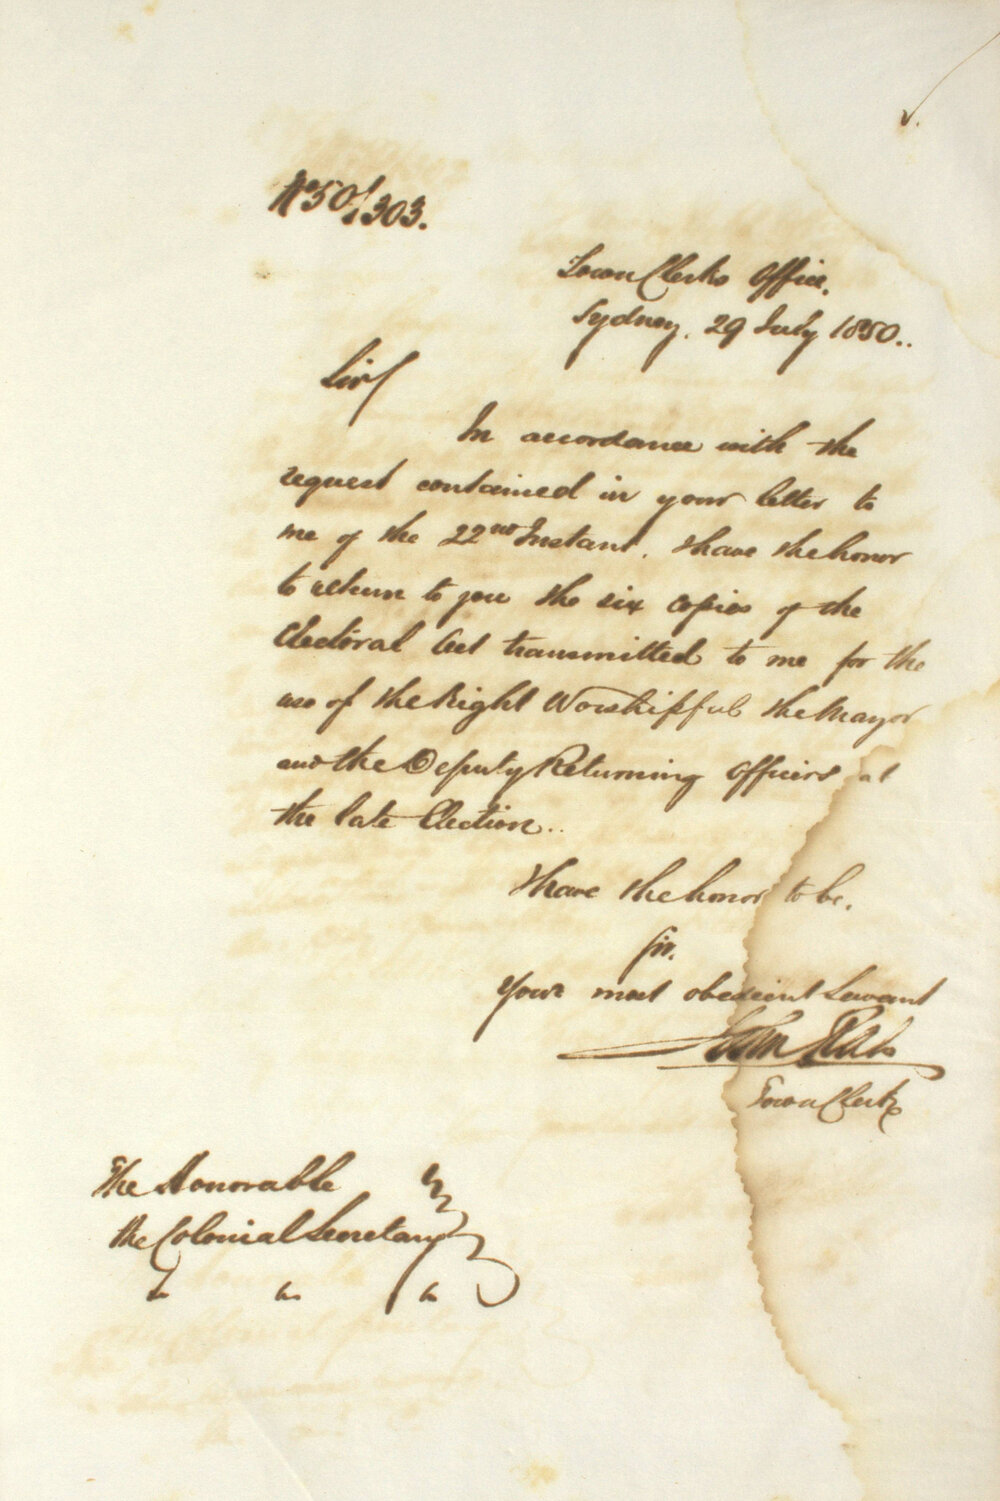 No 50/303.
Town Clerks Office.
Sydney. 29 July 1850..
Sir/
In accordance with the
request contained in your letter to
me of the 22nd Instant. I have the honor
to return to you the six copies of the
Electoral Act transmitted to me for the
use of the Right Worshipful the Mayor
and the Deputy Returning Officers at
the late Election..
I have the honor to be.
Sir.
Your most obedient Servant
John
Town Clerk
The Honorable
the Colonial Secretary